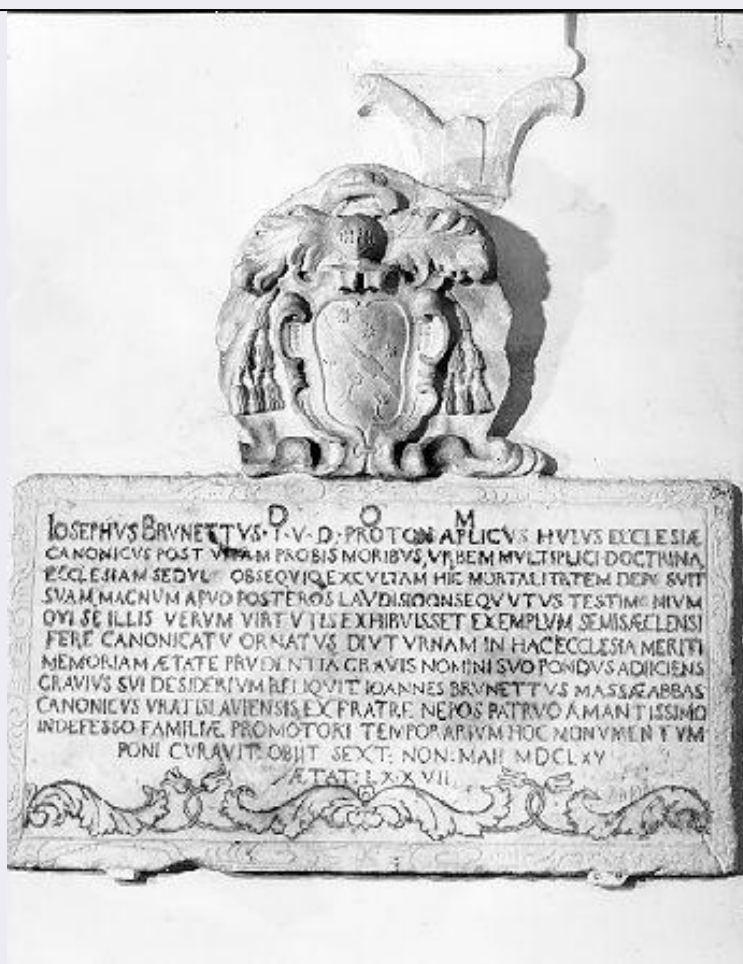 D O M
IOSEPHVS BRVNETTVS·I·V·D·PROTON APLICVS HVIVS ECCLESIÆ
CANONICVS POST VITAM PROBIS MORIBVS, VRBEM MVLTIPLICI DOCTRINA
ECCLESIAM SEDVLO OBSEQVIO EXCVLTAM HIC MORTALITATEM DEPOSVIT
SVAM MAGNVM APVD POSTEROS LAVDIS CONSEQVVTVS TESTIMONIVM
QVI SE ILLIS VERVM VIRTVTIS EXHIBVISSET EXEMPLVM SEMISÆCLENSI
FERE CANONICATV ORNATVS DIVTVRNAM IN HAC ECCLESIA MERITI
MEMORIAM ÆTATE PRVDENTIA GRAVIS NOMINI SVO PONDVS ADIICIENS
GRAVIVS SVI DESIDERIVM RELIQVIT IOANNES BRVNETTVS MASSÆ ABBAS
CANONICVS VRATISLAVIENSIS EX FRATRE NEPOS PATRVO AMANTISSIMO
INDEFESSO FAMILIÆ PROMOTORI TEMPORARIVM HOC MONVMENTVM
PONI CVRAVIT: OBIIT SEXT: NON: MAII MDCLXV
ÆTAT: LXXVII